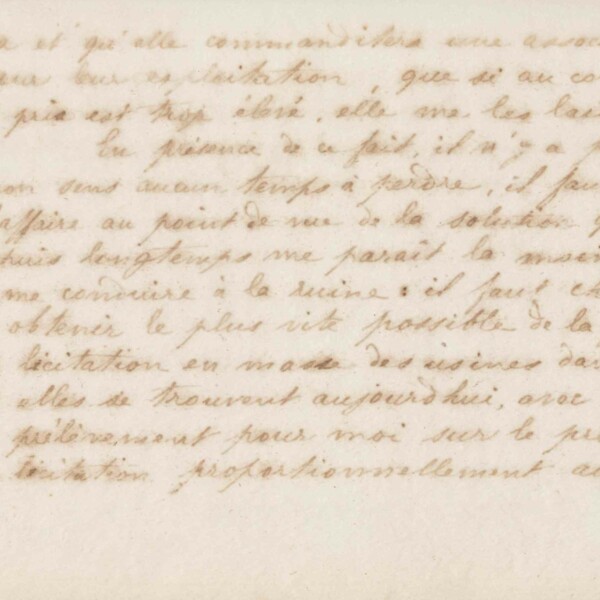 et qu'elle commanditera une assoc
leur exploitation, que si au co
prix est trop élevé, elle me les lais
En présence de ce fait, il n'y a p
mon sens aucun temps à perdre, il fau
l'affaire au point de vue de la solution q
depuis longtemps me paraît la moin
me conduire à la ruine : il faut ch
obtenir le plus vite possible de la
licitation en masse des usines da
elles se trouvent aujourd'hui, avec
prélèvement pour moi sur le pr
licitation proportionnellement au